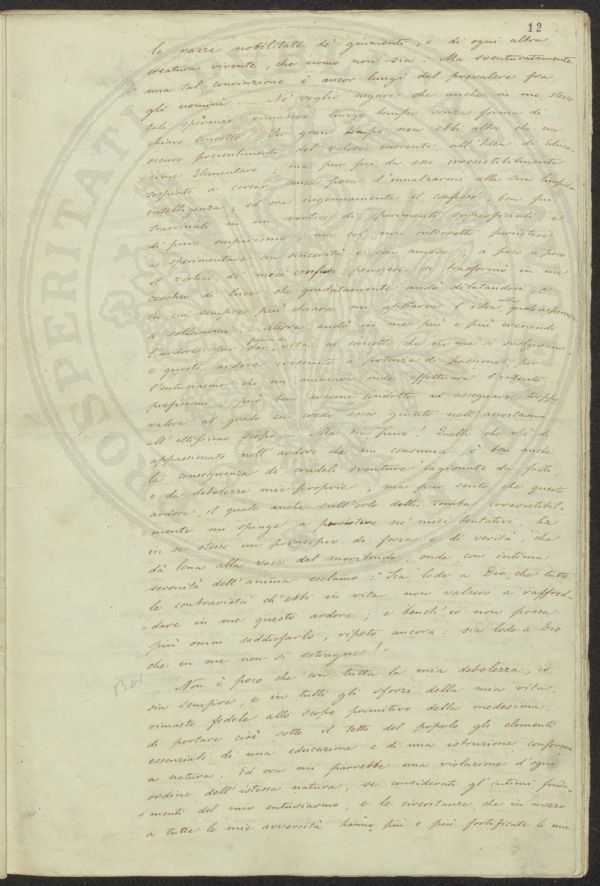 12
le razze nobilitate de' giumenti, e di ogni altra
creatura vivente, che uomo non sia. Ma sventuratamente
una tal convinzione è ancor lungi dal prevalere fra
gli uomini. — Nè voglio negare che anche in me stesso
tali speranze rimasero lungo tempo senza forma di
chiaro concetto. Per gran tempo non ebbi altro che un
oscuro presentimento del valore inerente all'Idea di Educa-
zione Elementare; ma pur fui da esso irresistibilmente
sospinto a cercar senza posa d'innalzarmi alla sua limpida
intelligenza; ed ora ingenuamente il confesso, ben fui
trascinato in un vortice di sperimenti superficiali e
di puro empirismo: ma col non interrotto persistere
a sperimentare con sincerità e con amore, a poco a poco
il vortice de' miei confusi pensieri si trasformò in un
cerchio di luce che gradatamente andò dilatandosi, e
in cui sempre più chiara mi apparve l'idea alla quale aspirava
a sollevarmi. Allora andò in me più e più crescendo
l'ardore per dar vita ai concetti che in me si svolgevano,
e questo ardore cresciuto a potenza di passione, per
l'entusiasmo che mi animava onde effettuare l'intento
prefissomi, può ben avermi condotto ad assegnare troppo
valore al grado cui credo esser giunto nell'accostarmi
all'altissimo scopo. Ma sia pure! Quello che v'è di
appassionato nell'ardore che mi consuma, è ben anche
la conseguenza di crudeli sventure cagionate da falli
e da debolezze mie proprie; ma pur sento che questo
ardore, il quale anche sull'orlo della tomba irresistibil-
mente mi spinge a persistere ne' miei tentativi, ha
in se stesso un principio di forza e di verità, che
dà lena alla voce del moribondo, onde con intima
serenità dell'anima esclamo: Sia lode a Dio, che tutte
le contrarietà ch'ebbi in vita non valsero a raffred-
dare in me questo ardore; e bench'io non possa
più omai soddisfarlo, ripeto ancora: sia lode a Dio
che in me non si estingue!
Non è poco che con tutta la mia debolezza, io
sia sempre, e in tutti gli sforzi della mia vita,
rimasto fedele allo scopo primitivo della medesima,
di portare cioè sotto il tetto del popolo gli elementi
essenziali di una educazione e di una istruzione conformi
a natura. Ed ora mi parrebbe una violazione d'ogni
ordine dell'istessa natura, se considerati gl'intimi fonda-
menti del mio entusiasmo, e le circostanze che in mezzo
a tutte le mie avversità hanno più e più fortificate le mie